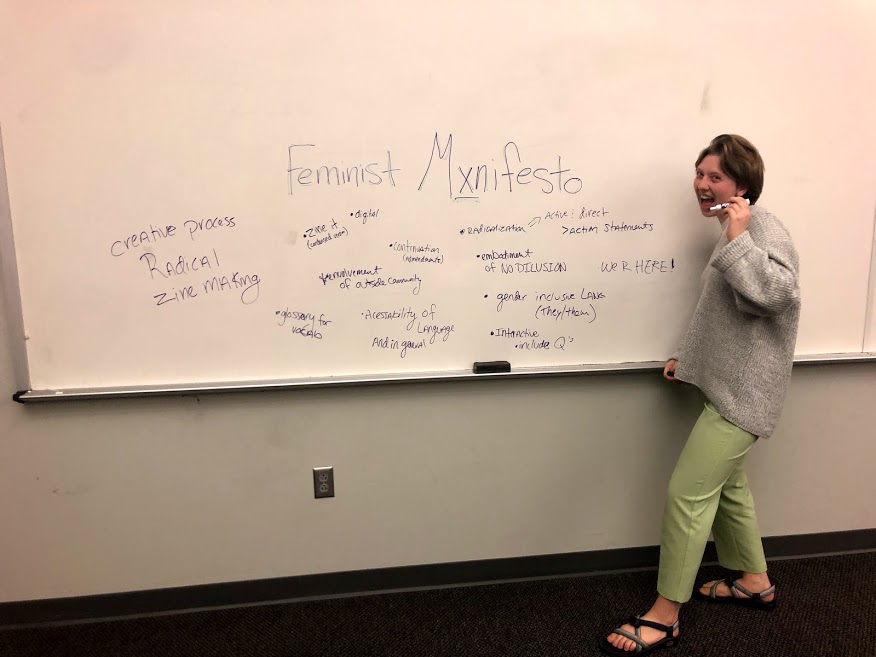 Feminist Mxnifesto
creative process
Radical
Zine Making
• digital
• Zine it
• continuation
involvement
of outside community
• glossary for
vocab
• Acessibility of
Language
And in general
• Radicalization
Active : direct
>action statements
• embodiment
of NO DILUSION
We R HERE!
• gender inclusive LANG
(They/them)
• Interactive
• include Q's